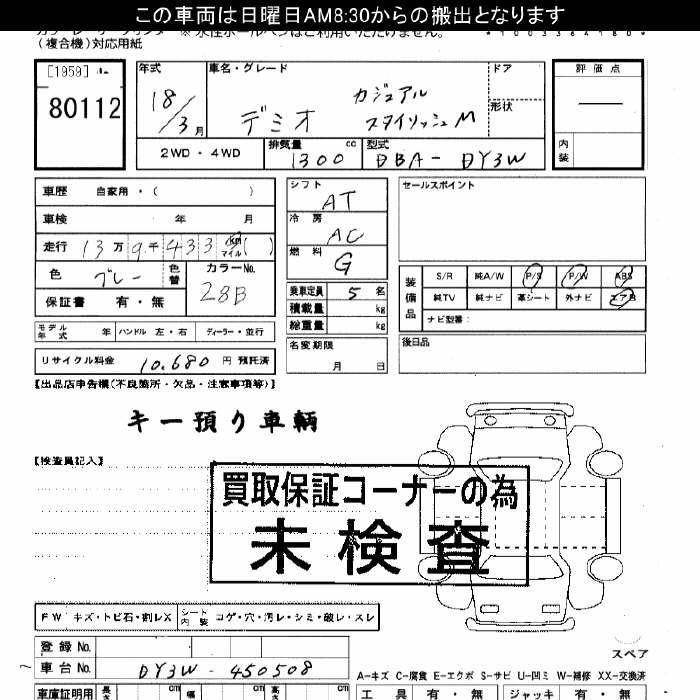 この車両は日曜日AM8:30からの搬出となります
(複合機)対応用紙
[1959]
80112
年式
18/3月
車名・グレード
デミオ
カジュアル
スタイリッシュM
ドア
形状
評価点
内装
2WD・4WD
排気量
1300 cc
型式
DBA-DY3W
車歴 自家用・( )
車検 年 月
走行 13万9千433 km マイル ( )
色 グレー
色替
カラーNo.
28B
保証書 有・無
シフト
AT
冷房
AC
燃料
G
乗車定員 5 名
積載量 kg
総重量 kg
セールスポイント
装備品
S/R 純A/W P/S P/W ABS
純TV 純ナビ 革シート 外ナビ エアB
ナビ型番:
モデル年式 年 ハンドル 左・右 ディーラー・並行
リサイクル料金 10,680 円 預託済
名変期限
月 日
後日品
【出品店申告欄(不良箇所・欠品・注意事項等)】
キー預り車輌
【検査員記入】
買取保証コーナーの為
未検査
FW キズ・トビ石・割レX シート内装 コゲ・穴・汚レ・シミ・破レ・スレ
登録No.
車台No. DY3W-450508
スペア
A-キズ C-腐食 E-エクボ S-サビ U-凹ミ W-補修 XX-交換済
車庫証明用 長さ cm 幅 cm 高さ cm
工具 有・無 ジャッキ 有・無